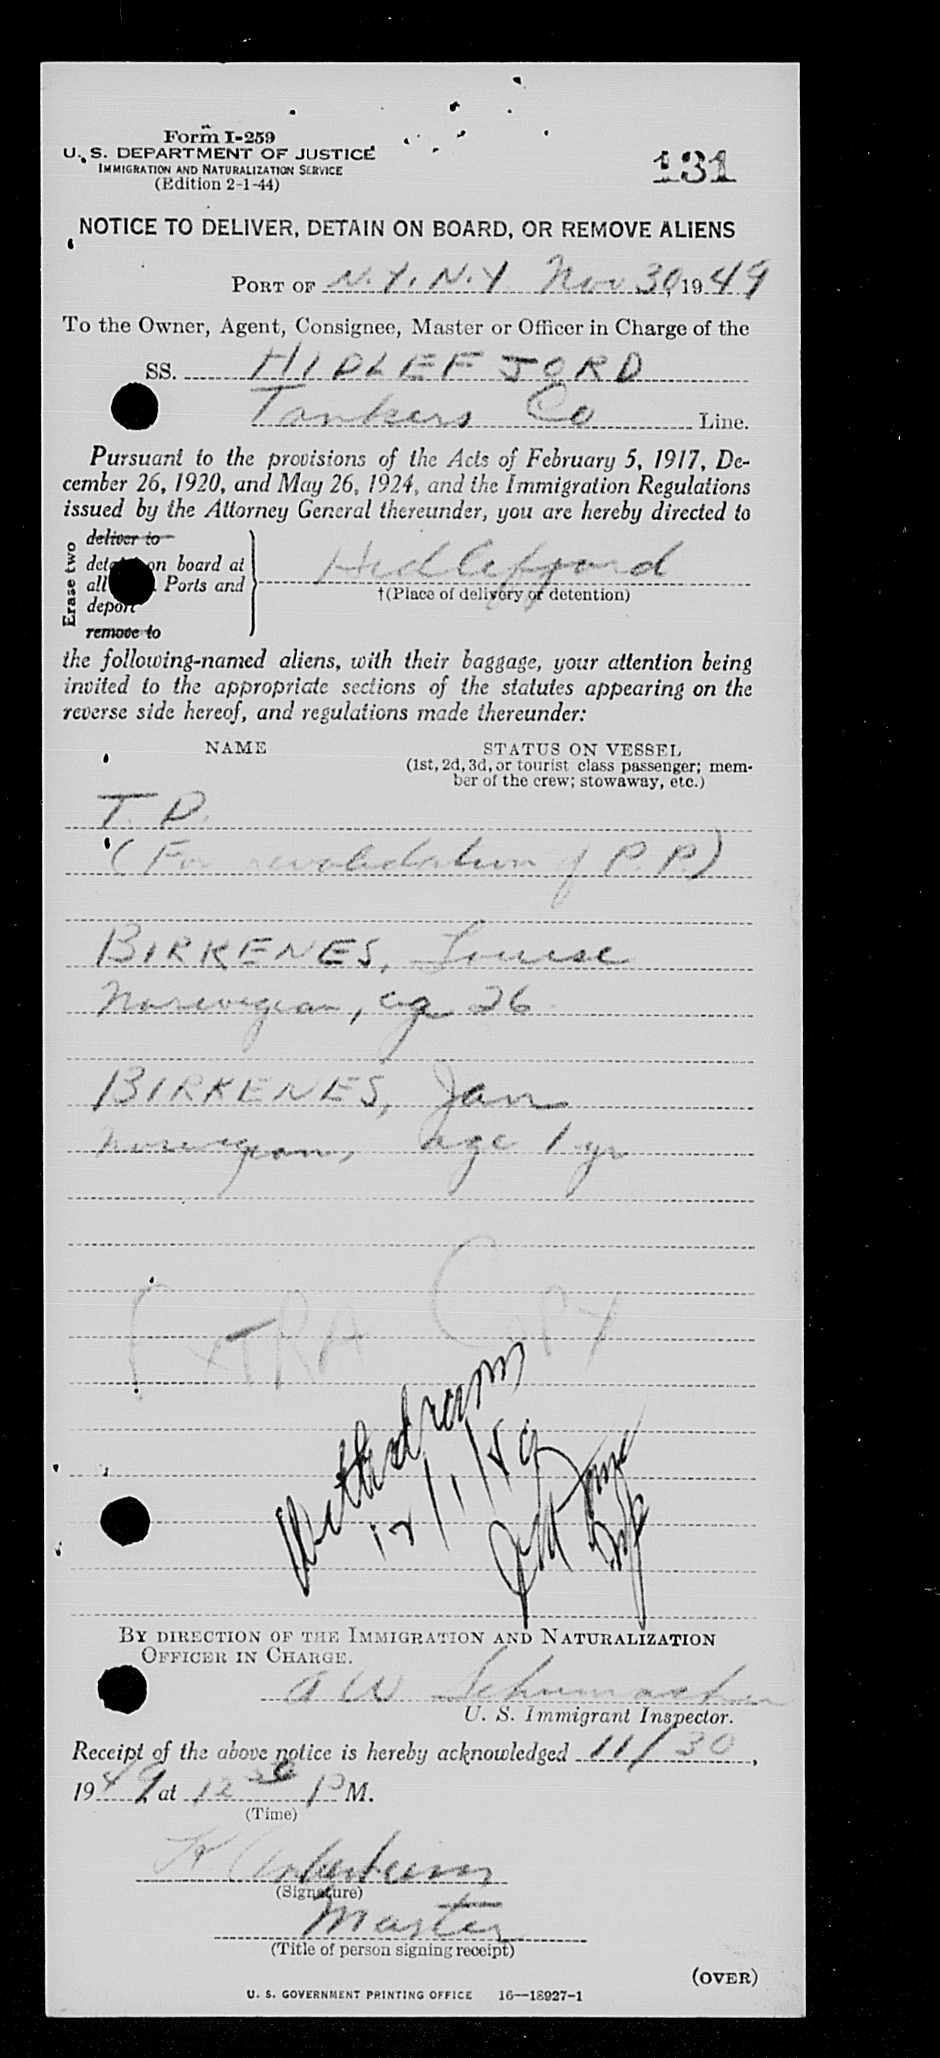 Form I-259
U. S. DEPARTMENT OF JUSTICE
IMMIGRATION AND NATURALIZATION SERVICE
(Edition 2-1-44)
131
NOTICE TO DELIVER, DETAIN ON BOARD, OR REMOVE ALIENS
PORT OF N.Y. N.Y. Nov 30, 1949
To the Owner, Agent, Consignee, Master or Officer in Charge of the
SS. HIDLEFJORD
Tankers Co Line.
Pursuant to the provisions of the Acts of February 5, 1917, De-
cember 26, 1920, and May 26, 1924, and the Immigration Regulations
issued by the Attorney General thereunder, you are hereby directed to
Erase two
deliver to
detain on board at
all Ports and
deport
remove to
Hidlefjord
†(Place of delivery or detention)
the following-named aliens, with their baggage, your attention being
invited to the appropriate sections of the statutes appearing on the
reverse side hereof, and regulations made thereunder:
NAME STATUS ON VESSEL
(1st, 2d, 3d, or tourist class passenger; mem-
ber of the crew; stowaway, etc.)
T. D.
(For revalidation of P.P.)
BIRKENES, Louise
Norwegian, age 26
BIRKENES, Jan
Norwegian, age 1 yr
EXTRA COPY
Withdrawn
12/1/49
BY DIRECTION OF THE IMMIGRATION AND NATURALIZATION
OFFICER IN CHARGE.
A W Schumacher
U. S. Immigrant Inspector.
Receipt of the above notice is hereby acknowledged 11/30,
1949 at 12 30 P M.
(Time)
(Signature)
Master
(Title of person signing receipt)
(OVER)
U. S. GOVERNMENT PRINTING OFFICE 16—18927-1